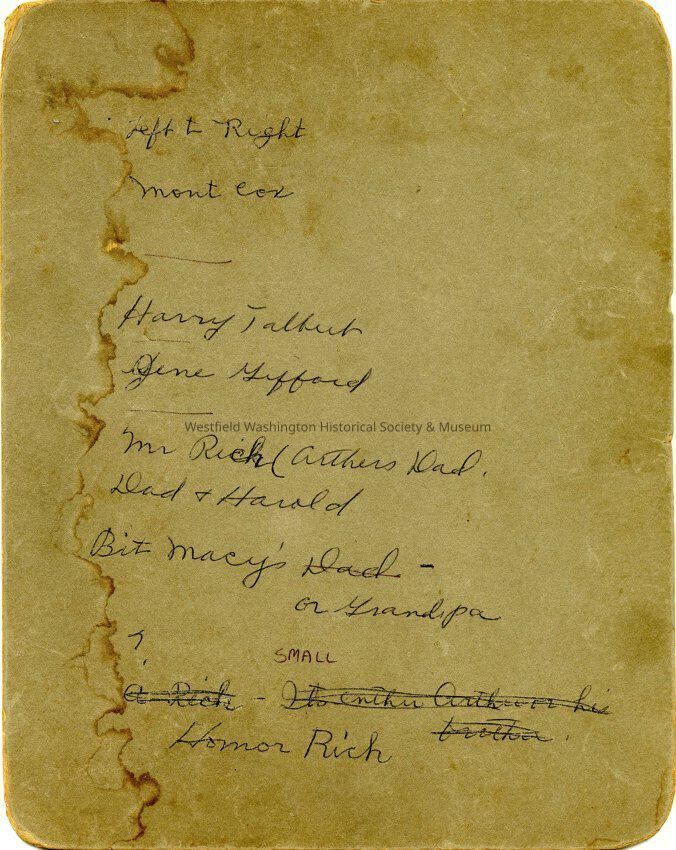 Left to Right
Mont Cox
Harry Talbert
Gene Gifford
Westfield Washington Historical Society & Museum
Mr Rich (Arthers Dad.
Dad & Harold
Bit Macy's Dad -
or Grandpa
?
SMALL
A Rich - Its either Arthur or his
brother.
Homor Rich